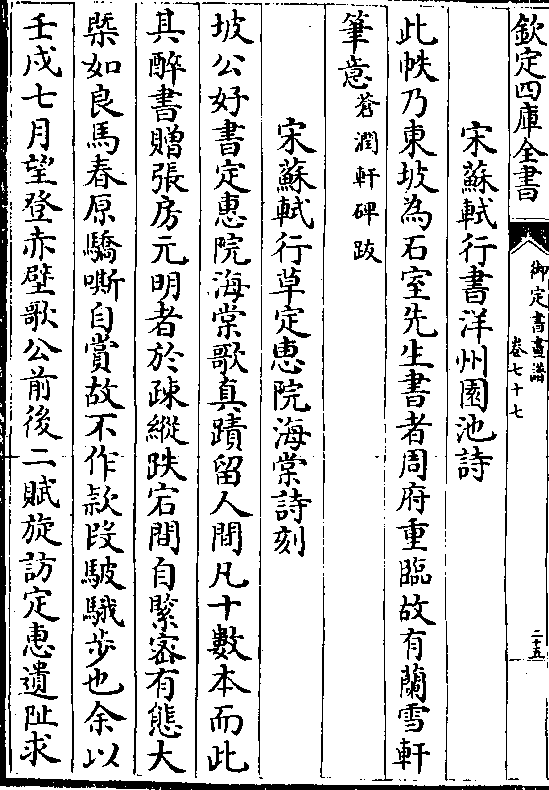 欽定四庫全書
御定書畫譜
卷七十七
二十五
宋蘇軾行書洋州園池詩
此帙乃東坡為石室先生書者周府重臨故有蘭雪軒
筆意蒼潤軒碑跋
宋蘇軾行草定惠院海棠詩刻
坡公好書定惠院海棠歌真蹟留人間凡十數本而此
其醉書贈張房元明者於疎縱跌宕間自緊密有態大
槩如良馬春原驕嘶自賞故不作款段駊騀步也余以
壬戌七月望登赤壁歌公前後二賦旋訪定惠遺阯求